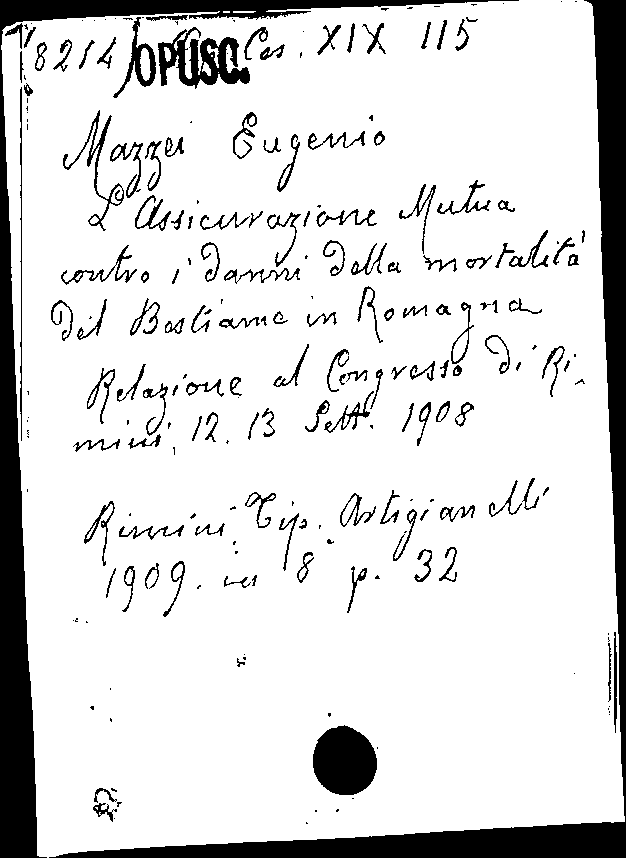 8214) OPUSC. Cas. XIX 115
Mazzei Eugenio
L'Assicurazione Mutua
contro i danni della mortalità
del Bestiame in Romagna
Relazione al Congresso di Ri-
mini, 12. 13 Sett. 1908
Rimini, Tip. Artigianelli
1909. in 8° p. 32